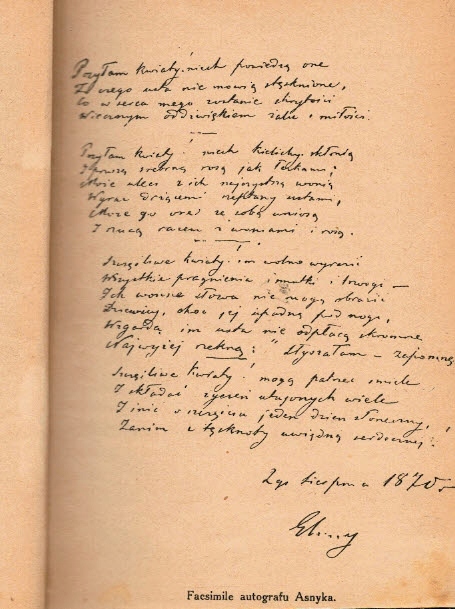 Posyłam kwiaty: niech powiedzą one
To czego usta nie mówią stęsknione,
Co w serca mego zostanie skrytości
Wieczornym oddźwiękiem żalu i miłości.
Posyłam kwiaty! niech kielichy skłonią
I prószą srebrną rosą jak łezkami;
Może uleci z ich najczystszą wonią
Wyraz drżącemi szeptany ustami,
Może go one ze sobą uniosą
I rzucą razem z woniami i rosą.
Szczęśliwe kwiaty! im wolno wyrazić
Wszystkie pragnienia i smutki i trwogi –
Ich wonne słowa nie mogą obrazić
Dziewicy, choć jej upadną pod nogi,
Wzgardą im usta nie odpłacą skromne
Najwyżej rzekną: "słyszałam – zapomnę.
Szczęśliwe kwiaty! mogą patrzeć śmiele
I składać życzeń utajonych wiele
I śnić o szczęściu jeden dzień słoneczny,
Zanim z tęsknoty uwiędną serdecznej!
2go sierpnia 1870 r
El...y
Facsimile autografu Asnyka.